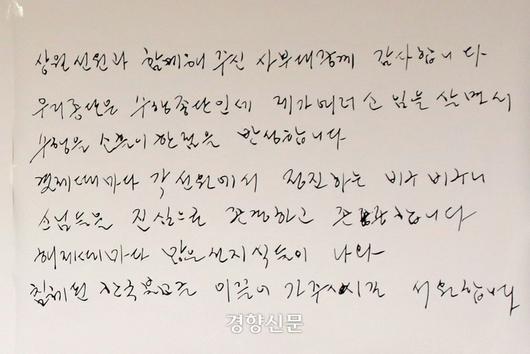 상월선원과 함께해 주신 사부대중께 감사합니다
우리종단은 수행종단인데 제가 여러 소임을 살면서
수행을 소홀이 한점을 반성합니다
결제때마다 각 선원에서 정진하는 비구 비구니
스님들을 진심으로 존경하고 존중합니다
해제때마다 많은 선지식들이 나와
침체된 한국불교를 이끌어 가주시시길 서원합니다
경향신문